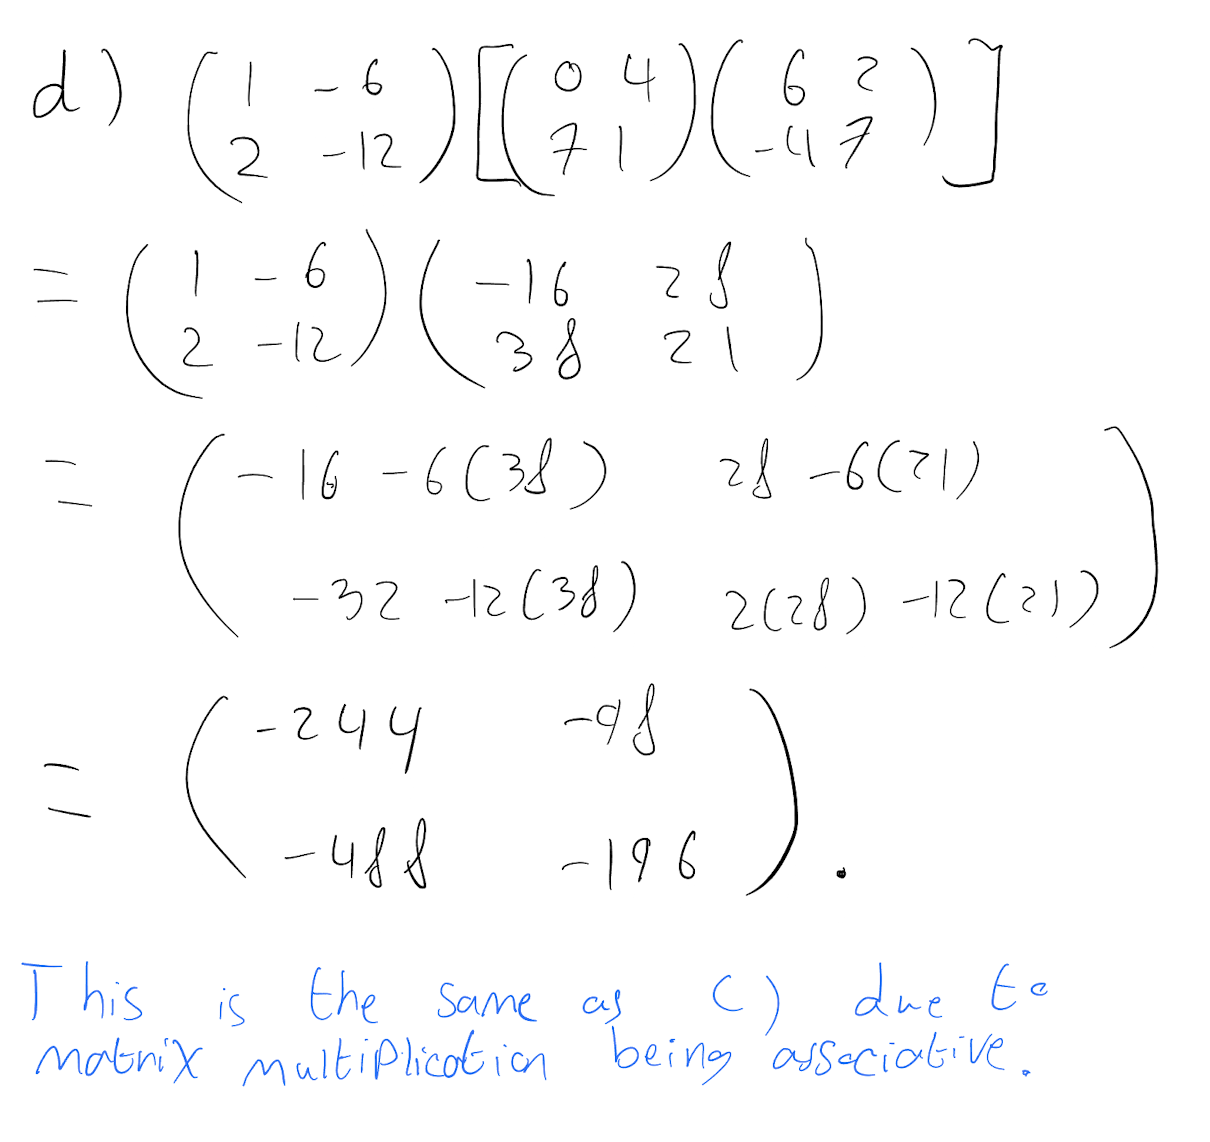 d) ( 1 -6 ) [ ( 0 4 ) ( 6 2 ) ]
( 2 -12 ) ( 7 1 ) ( -4 7 )
= ( 1 -6 ) ( -16 28 )
( 2 -12 ) ( 38 21 )
= ( -16 -6(38) 28 -6(21) )
( -32 -12(38) 2(28) -12(21) )
= ( -244 -98 )
( -488 -196 ) .
This is the same as C) due to
matrix multiplication being associative.